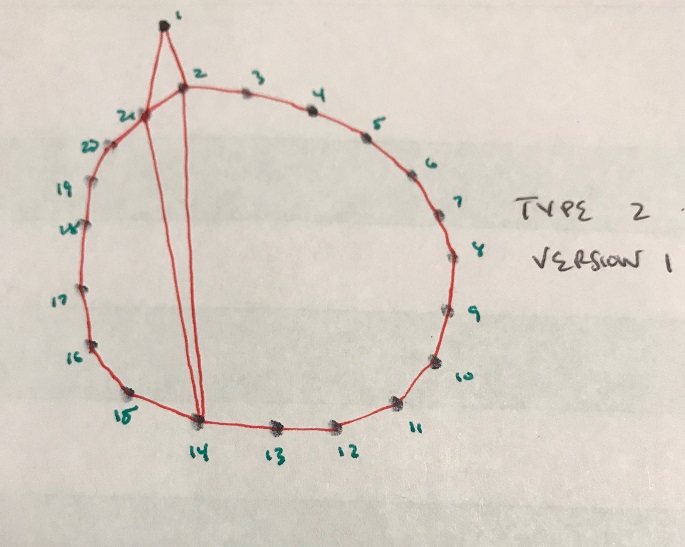 1
2
3
4
5
6
7
8
9
10
11
12
13
14
15
16
17
18
19
20
21
TYPE 2
VERSION 1